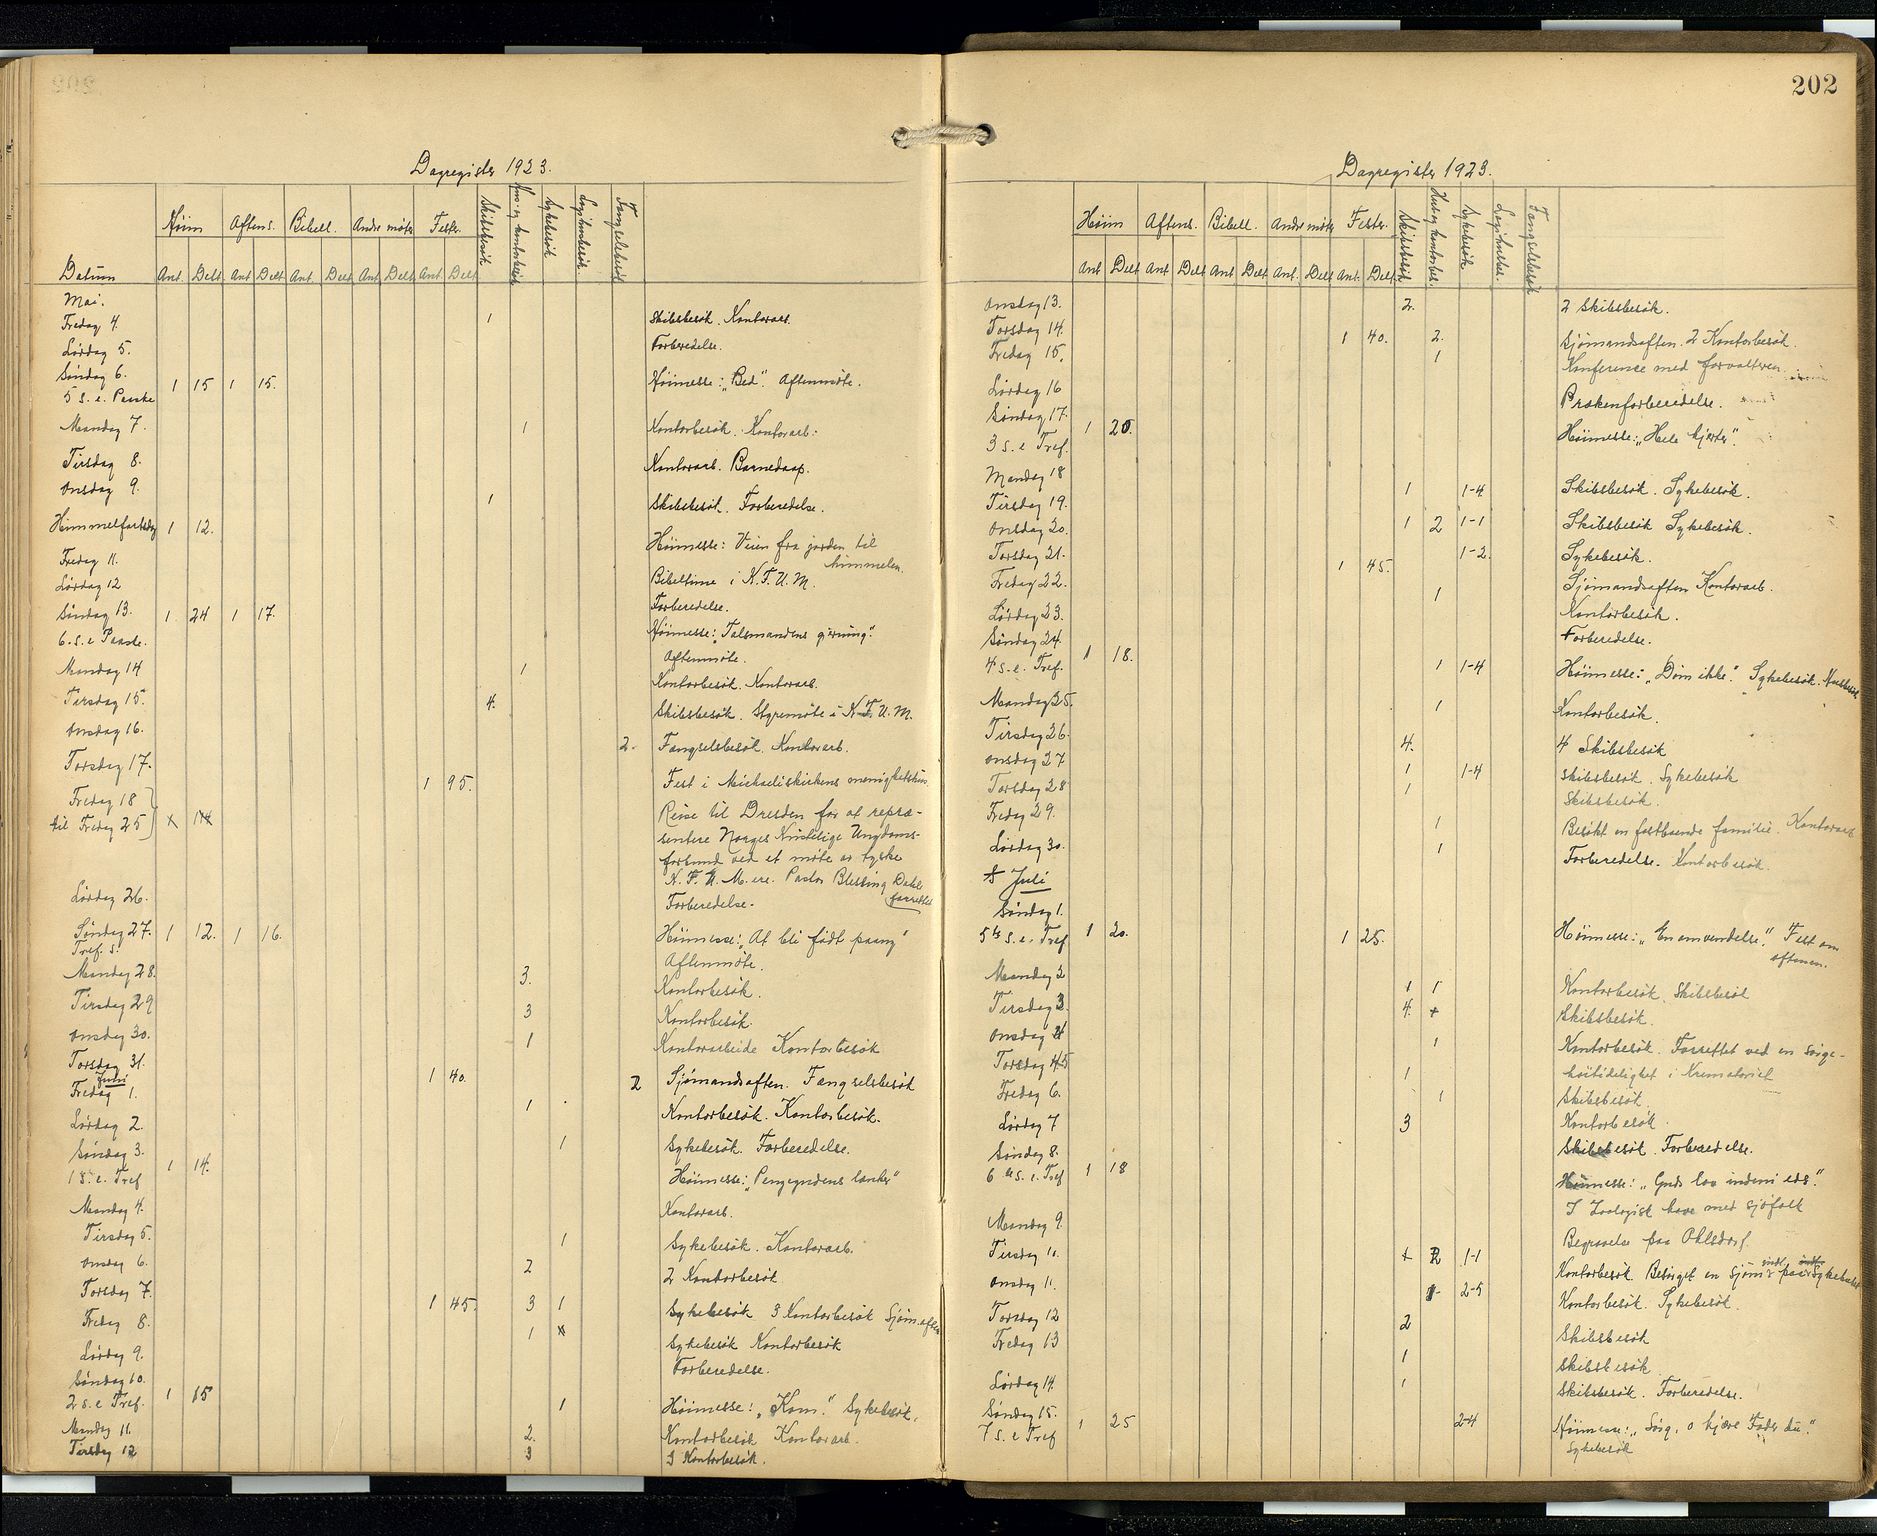 Dagregister 1923.
Høim Aftens. Bibell. Andre møter Fester Skibsbesøk Hus- og kontorbesøk Sykebesøk Logihusbesøk Fængselsbesøk
Datum Ant. Delt. Ant Delt. Ant. Delt Ant. Delt. Ant. Delt.
Mai.
Fredag 4. 1 Skibsbesøk. Kontorarb.
Lørdag 5. Forberedelse.
Søndag 6.
5 S. e. Paaske 1 15 1 15. Høimesse: „Bed”. Aftenmøte.
Mandag 7. 1 Kontorbesøk. Kontorarb.
Tirsdag 8. Kontorarb. Barnedaap.
Onsdag 9. 1 Skibsbesøk. Forberedelse.
Himmelfartsdag 1 12. Høimesse: Veien fra jorden til himmelen.
Fredag 11. Bibeltime i K.F.U.M.
Lørdag 12 Forberedelse.
Søndag 13. 1 24 1 17. Høimesse: „Talsmandens gjerning”.
6. S. e Paaske. Aftenmøte.
Mandag 14 1 Kontorbesøk. Kontorarb.
Tirsdag 15. 4. Skibsbesøk. Styremøte i K.F.U.M.
Onsdag 16. 2. Fængselsbesøk. Kontorarb.
Torsdag 17. 1 95. Fest i Michaeliskirkens menighetshus.
Fredag 18
til Fredag 25 Reise til Dresden for at repræ-
sentere Norges Kristelige Ungdoms-
forbund ved et møte av tyske
K.F.U.M.ere. Pastor Blessing Dahl
forrettet
Lørdag 26. Forberedelse.
Søndag 27. 1 12. 1 16. Høimesse: „At bli født paany”
Tref. S. Aftenmøte.
Mandag 28. 3. Kontorbesøk.
Tirsdag 29 3 Kontorbesøk.
Onsdag 30. 1 Kontorarbeide Kontorbesøk
Torsdag 31. 1 40. 2 Sjømandsaften. Fængselsbesøk
Juni
Fredag 1. 1 Kontorbesøk. Kontorbesøk.
Lørdag 2. 1 Sykebesøk. Forberedelse.
Søndag 3.
1 S. e. Tref 1 14. Høimesse: „Pengegudens lænker”
Mandag 4. Kontorarb.
Tirsdag 5. 1 Sykebesøk. Kontorarb.
Onsdag 6. 2 2 Kontorbesøk
Torsdag 7. 1 45. 3 1 Sykebesøk 3 Kontorbesøk Sjøm.aften
Fredag 8. 1 Sykebesøk Kontorbesøk
Lørdag 9. Forberedelse.
Søndag 10.
2 s. e Tref. 1 15 1 Høimesse: „Kom.” Sykebesøk.
Mandag 11. 2. Kontorbesøk Kontorarb.
Tirsdag 12 3 3 Kontorbesøk.
202
Dagregister 1923.
Høim Aftens. Bibell. Andre møter Fester. Skibsbesøk Hus og kontorbes. Sykebesøk Logihusbes. Fængselsbesøk
Ant Delt Ant Delt Ant. Delt. Ant. Delt Ant. Delt.
Onsdag 13. 2. 2 Skibsbesøk.
Torsdag 14. 1 40. 2. Sjømandsaften. 2 Kontorbesøk.
Fredag 15. 1 Konference med forvalteren
Lørdag 16 Prækenforberedelse.
Søndag 17.
3 s. e Tref. 1 20. Høimesse: „Hele hjerter”.
Mandag 18 1 1-4 Skibsbesøk. Sykebesøk.
Tirsdag 19. 1 2 1-1 Skibsbesøk Sykebesøk.
Onsdag 20. 1-2. Sykebesøk.
Torsdag 21. 1 45. Sjømandsaften Kontorarb.
Fredag 22. 1 Kontorbesøk.
Lørdag 23. Forberedelse.
Søndag 24.
4 s. e. Tref. 1 18. 1 1-4 Høimesse: „Døm ikke.” Sykebesøk. Husbesøk
Mandag 25. 1 Kontorbesøk.
Tirsdag 26. 4. 4 Skibsbesøk
Onsdag 27 1 1-4 Skibsbesøk. Sykebesøk
Torsdag 28 1 Skibsbesøk.
Fredag 29. 1 Besøkt en fastboende familie. Kontorarb
Lørdag 30. 1 Forberedelse. Kontorbesøk.
Juli
Søndag 1.
5te s. e. Tref 1 20. 1 25. Høimesse: „En omvendelse.” Fest om
aftenen.
Mandag 2 1 1 Kontorbesøk. Skibsbesøk
Tirsdag 3. 4. Skibsbesøk.
Onsdag 4 1 Kontorbesøk. Forrettet ved en sørge-
Torsdag 5 1 høitidelighet i Krematoriet
Fredag 6. 1 Skibsbesøk.
Lørdag 7 3 Kontorbesøk.
Søndag 8. Skibsbesøk. Forberedelse.
6te s. e. Tref 1 18 Høimesse: „Guds lov indeni eds.”
I Zoologisk have med sjøfolk
Mandag 9. Begravelse paa Ohlsdorf.
Tirsdag 10. 2 1-1 Kontorbesøk. Besørget en sjøm. indl. paa Sykehuset
Onsdag 11. 1 2-5 Kontorbesøk. Sykebesøk.
Torsdag 12 2 Skibsbesøk
Fredag 13 1 Skibsbesøk
Lørdag 14. 1 Skibsbesøk. Forberedelse.
Søndag 15.
7 S. e Tref 1 25 2-4 Høimesse: „Sørg, o kjære Fader du.”
Sykebesøk